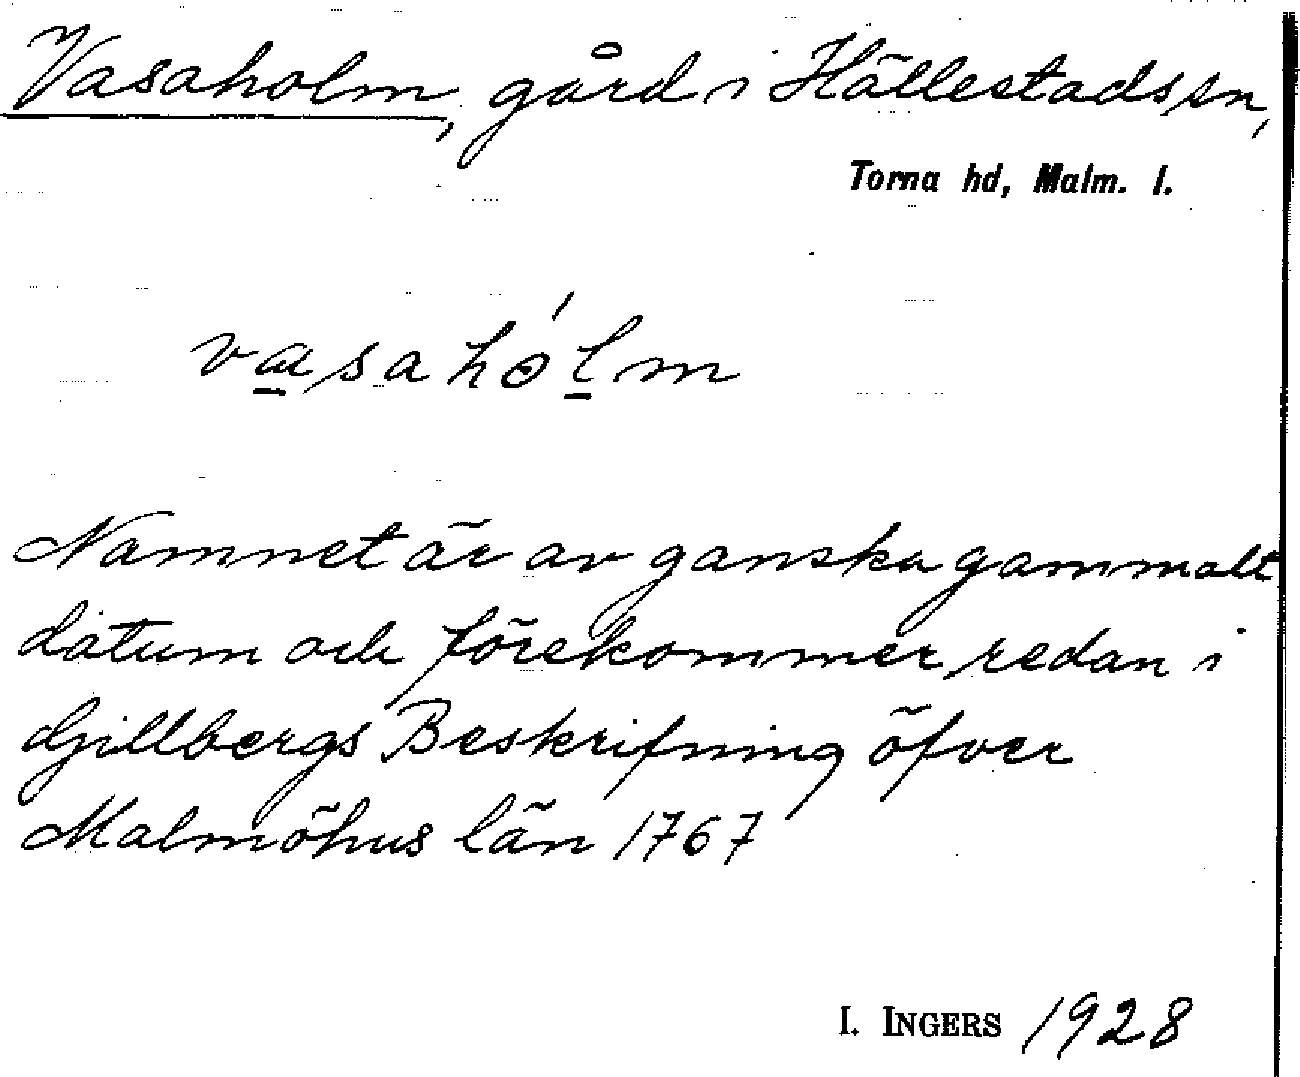 Vasaholm, gård i Hällestads sn,
Torna hd, Malm. l.
vasahólm
Namnet är av ganska gammalt
datum och förekommer redan i
Gillbergs Beskrifning öfver
Malmöhus län 1767
I. INGERS 1928